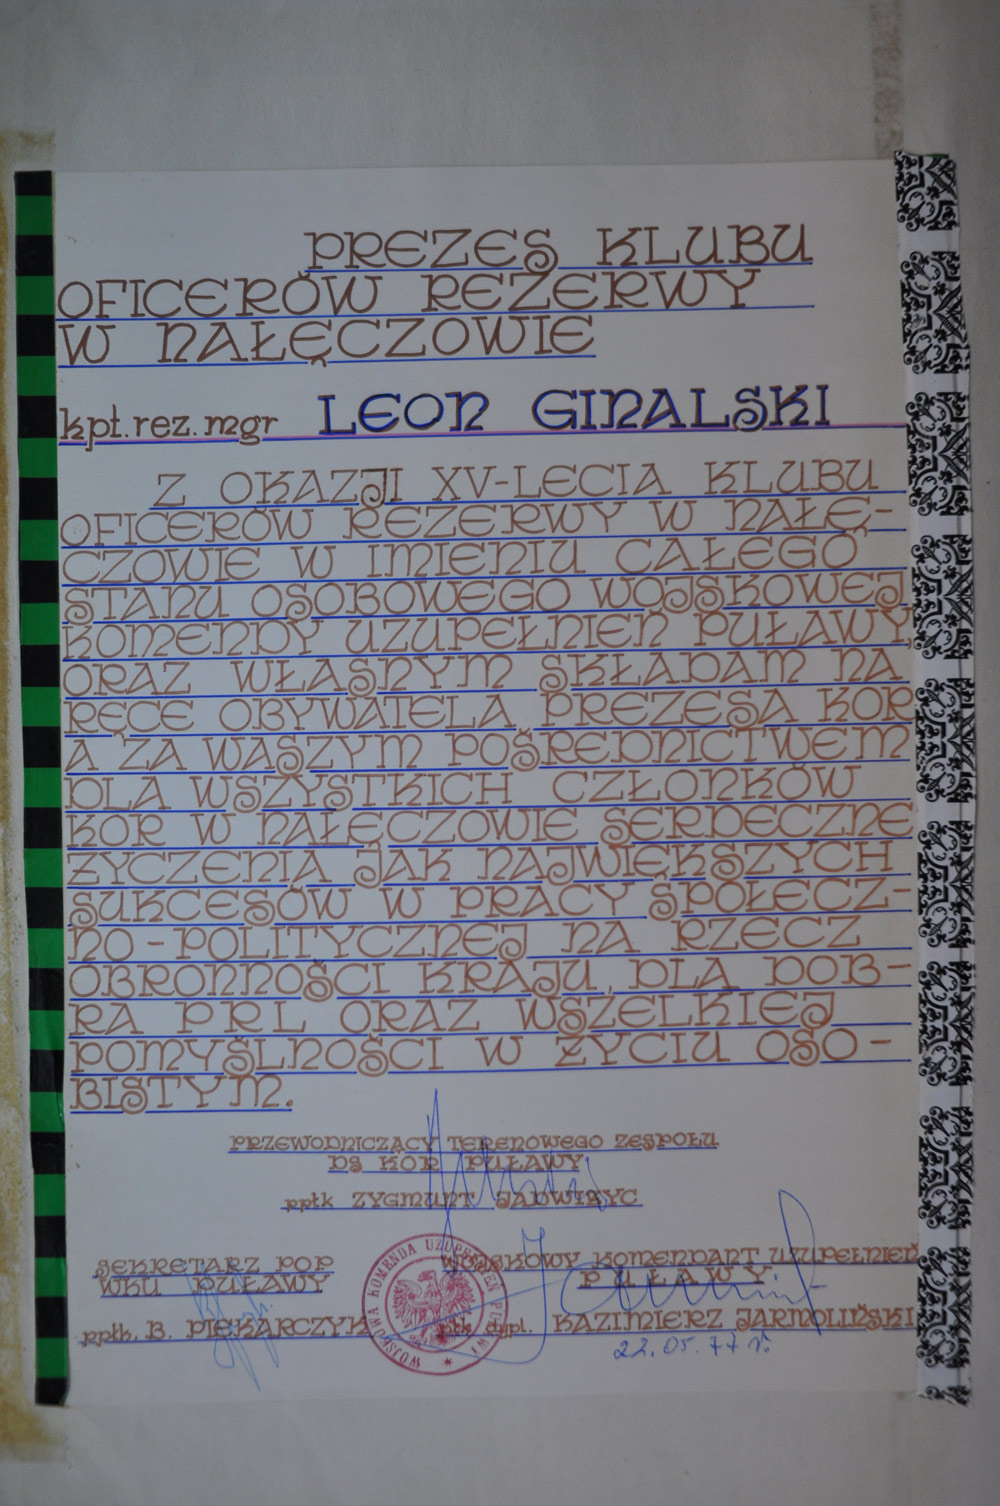 PREZES KLUBU
OFICERÓW REZERWY
W NAŁĘCZOWIE
kpt. rez. mgr LEON GINALSKI
Z OKAZJI XV-LECIA KLUBU
OFICERÓW REZERWY W NAŁĘ-
CZOWIE W IMIENIU CAŁEGO
STANU OSOBOWEGO WOJSKOWEJ
KOMENDY UZUPEŁNIEŃ PUŁAWY,
ORAZ WŁASNYM SKŁADAM NA
RĘCE OBYWATELA PREZESA KOR
A ZA WASZYM POŚREDNICTWEM
DLA WSZYSTKICH CZŁONKÓW
KOR W NAŁĘCZOWIE SERDECZNE
ŻYCZENIA JAK NAJWIĘKSZYCH
SUKCESÓW W PRACY SPOŁECZ-
NO-POLITYCZNEJ NA RZECZ
OBRONNOŚCI KRAJU, DLA DOB-
RA PRL ORAZ WSZELKIEJ
POMYŚLNOŚCI W ŻYCIU OSO-
BISTYM.
PRZEWODNICZĄCY TERENOWEGO ZESPOŁU
DS KOR PUŁAWY
ppłk ZYGMUNT
SEKRETARZ POP
WKU PUŁAWY
ppłk. B. PIĘKARCZYK
WOJSKOWA KOMENDA UZUPEŁNIEŃ
WOJSKOWY KOMENDANT UZUPEŁNIEŃ
PUŁAWY
dypl. KAZIMIERZ JARMOLIŃSKI
22.05.77 r.